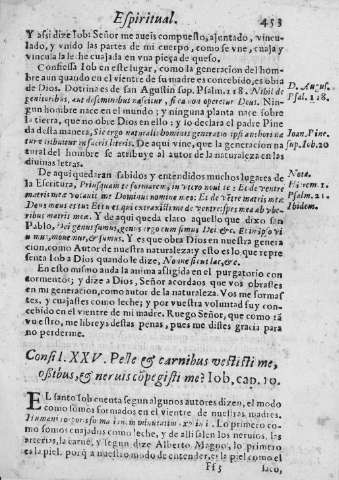 Espiritual. 453
Y assi dize Iob: Señor me aueis compuesto, ajuntado, vincu-
lado, y vnido las partes de mi cuerpo, como se vne, cuaja y
vincula la leche cuajada en vna pieça de queso.
Confiessa Iob en este lugar, como la generacion del hom-
bre aun quando en el vientre de su madre es concebido, es obra
de Dios. Dotrina es de san Agustin sup. Psalm. 118. Nihil de
genitoribus, aut de seminibus nascitur, si ea non operetur Deus. Nin-
gun hombre nace en el mundo; y ninguna planta nace sobre
la tierra, que no obre Dios en ello: y lo declara el padre Pine
da desta manera, Sic ergo naturalis hominis generatio ipsi anchori na
turæ tribuitur in sacris literis. De aqui viene, que la generacion na
tural del hombre se atribuye al autor de la naturaleza en las
diuinas letras.
De aqui quedaran sabidos y entendidos muchos lugares de
la Escritura, Priusquam te formarem, in vtero noui te: Et de ventre
matris meæ vocauit me Dominus nomine meo: Et de vētre matris meæ
Deus meus es tu: Et tu es qui extraxisti me de ventre: spes mea ab vbe-
ribus matris meæ. Y de aqui queda claro aquello que dixo san
Pablo, Dei genus sumus, genus ergo cum simus Dei, &c. Et in ipso vi
uimus, mouemur, & sumus. Y es que obra Dios en nuestra genera
cion, como Autor de nuestra naturaleza: y esto es lo que repre
senta Iob a Dios quando le dize, Nonne sicut lac, &c.
En esto mismo anda la anima afligida en el purgatorio con
tormentos; y dize a Dios, Señor acordaos que vos obrastes
en mi generacion, como autor de la naturaleza. Vos me formas
tes, y cuajastes como leche; y por vuestra voluntad fuy con-
cebido en el vientre de mi madre. Ruego Señor, que como tā
vuestro, me libreys destas penas, pues me distes gracia para
no perderme.
D. Augus.
Psal. 118.
Ioan. Pine.
sup. Iob. 20
Nota.
Hierem. 1.
Psalm. 21.
Ibidem.
Consil. XXV. Pelle & carnibus vestisti me,
ossibus, & neruis cōpegisti me? Iob, cap. 10.
EL santo Iob cuenta segun algunos autores dizen, el modo
como somos formados en el vientre de nuestras madres.
Lo primero co-
mo somos cuajados como leche, y de alli salen los neruios, las
arterias, la carne, y segun dize Alberto Magno, lo primero
es la piel, porq̃ a nuestro modo de entender, es la piel como el
Ff 5 saco,